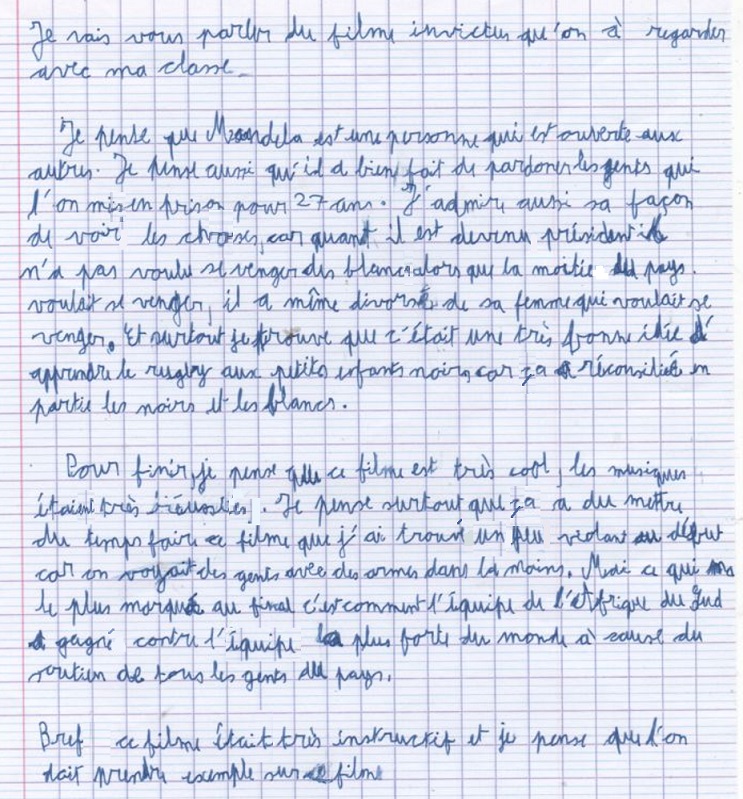 Je vais vous parler du filme invictus qu'on à regarder
avec ma classe.
Je pense que Mandela est une personne qui est ouverte aux
autres. Je pense aussi qu'il a bien fait de pardoner les gents qui
l'on mis en prison pour 27 ans. J'admire aussi sa façon
de voir les choses, car quant il est devenu président il
n'a pas voulu se venger des blancs alors que la moitie du pays
voulait se venger, il a même divorsé de sa femme qui voulait se
venger. Et surtout je trouve que c'était une très bonne idée d'
apprendre le rugby aux petits enfants noirs, car ça a réconsilié en
partie les noirs et les blancs.
Pour finir, je pense que ce filme est très cool, les musiques
étaient très réussies. Je pense surtout que ça a du mettre
du temps faire ce filme que j'ai trouvé un peu violant au début
car on voyait des gents avec des armes dans la moins. Mai ce qui ma
le plus marqué au final c'est comment l'équipe de l'Afrique du Sud
a gagné contre l'équipe la plus forte du monde à cause du
soutien de tous les gents du pays.
Bref ce filme était très instructif et je pense que l'on
doit prendre exemple sur ce film